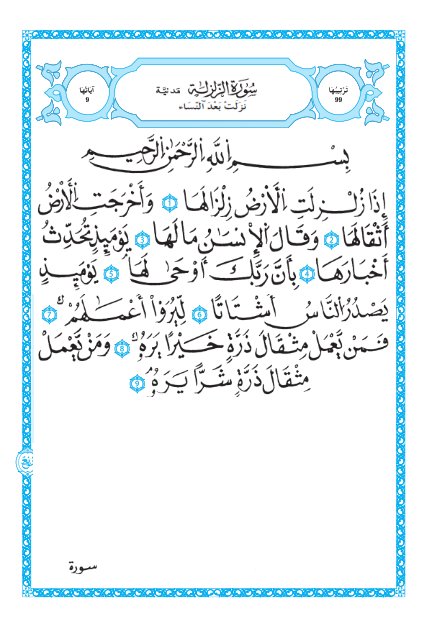 ترتيبها
99
سُورَةُ الزَّلْزَلَةِ مدنية
نَزَلَتْ بَعْدَ النِّسَاءِ
آياتها
9
بِسْمِ اللَّهِ الرَّحْمَٰنِ الرَّحِيمِ
إِذَا زُلْزِلَتِ الْأَرْضُ زِلْزَالَهَا 1 وَأَخْرَجَتِ الْأَرْضُ
أَثْقَالَهَا 2 وَقَالَ الْإِنسَٰنُ مَا لَهَا 3 يَوْمَئِذٍ تُحَدِّثُ
أَخْبَارَهَا 4 بِأَنَّ رَبَّكَ أَوْحَىٰ لَهَا 5 يَوْمَئِذٍ
يَصْدُرُ النَّاسُ أَشْتَاتًا 6 لِّيُرَوْا۟ أَعْمَٰلَهُمْ 7
فَمَن يَّعْمَلْ مِثْقَالَ ذَرَّةٍ خَيْرًا يَرَهُۥ 8 وَمَن يَّعْمَلْ
مِثْقَالَ ذَرَّةٍ شَرًّا يَرَهُۥ 9
سورة